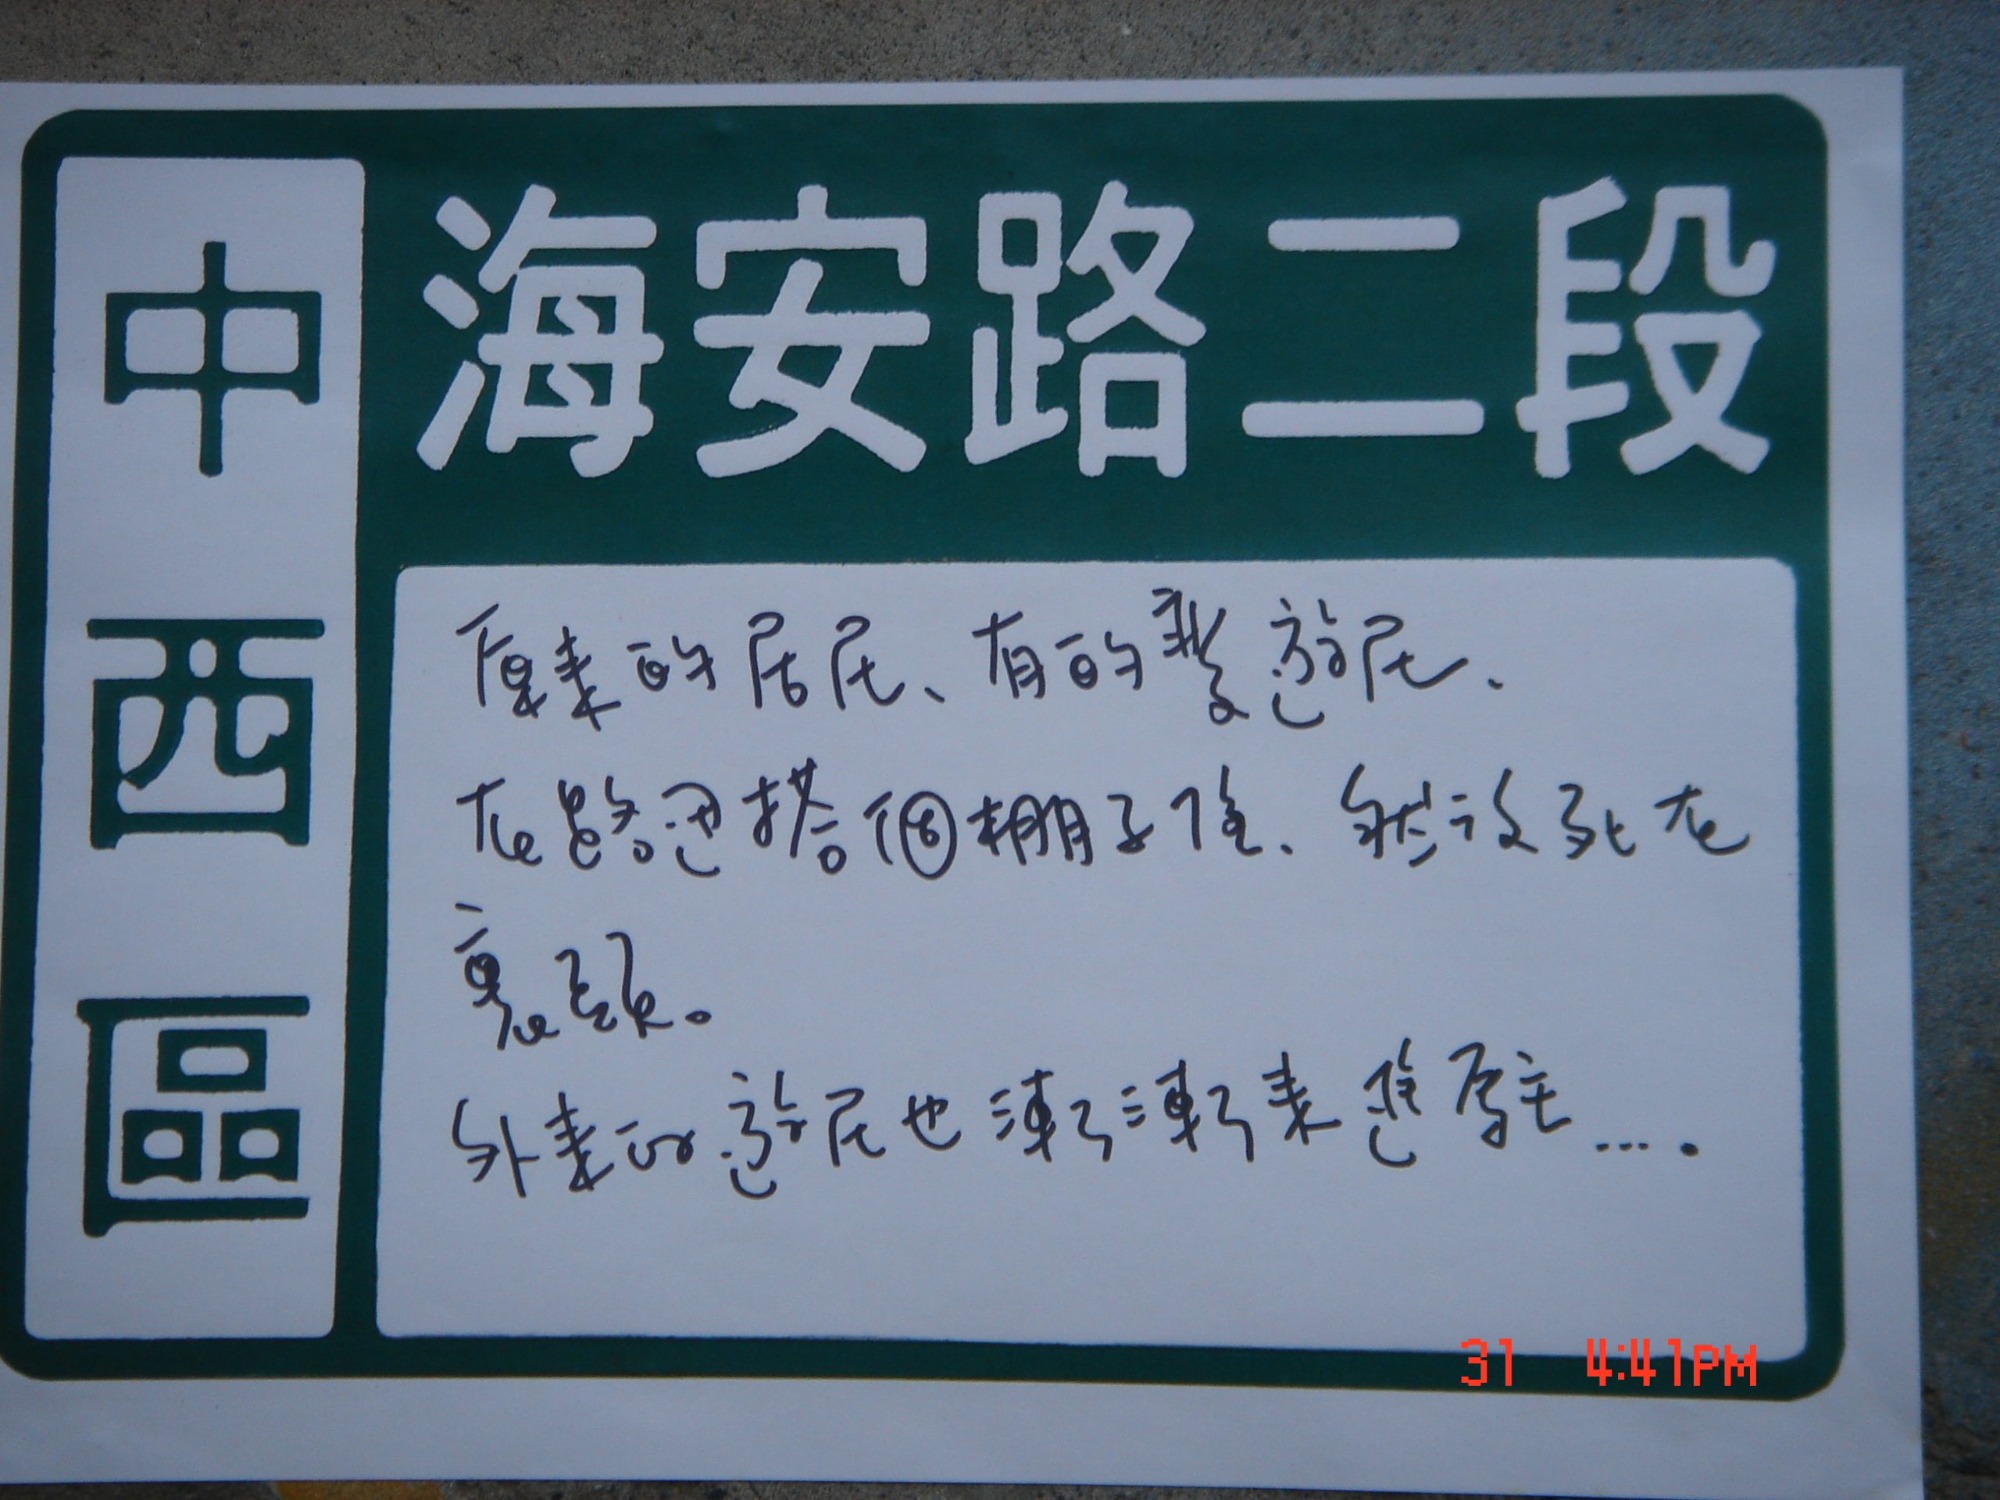 中西區
海安路二段
原來的居民、有的變遊民、
在路邊搭個棚子住、然後死在
裏頭。
外來的遊民也漸漸來進駐....
31 4:41PM